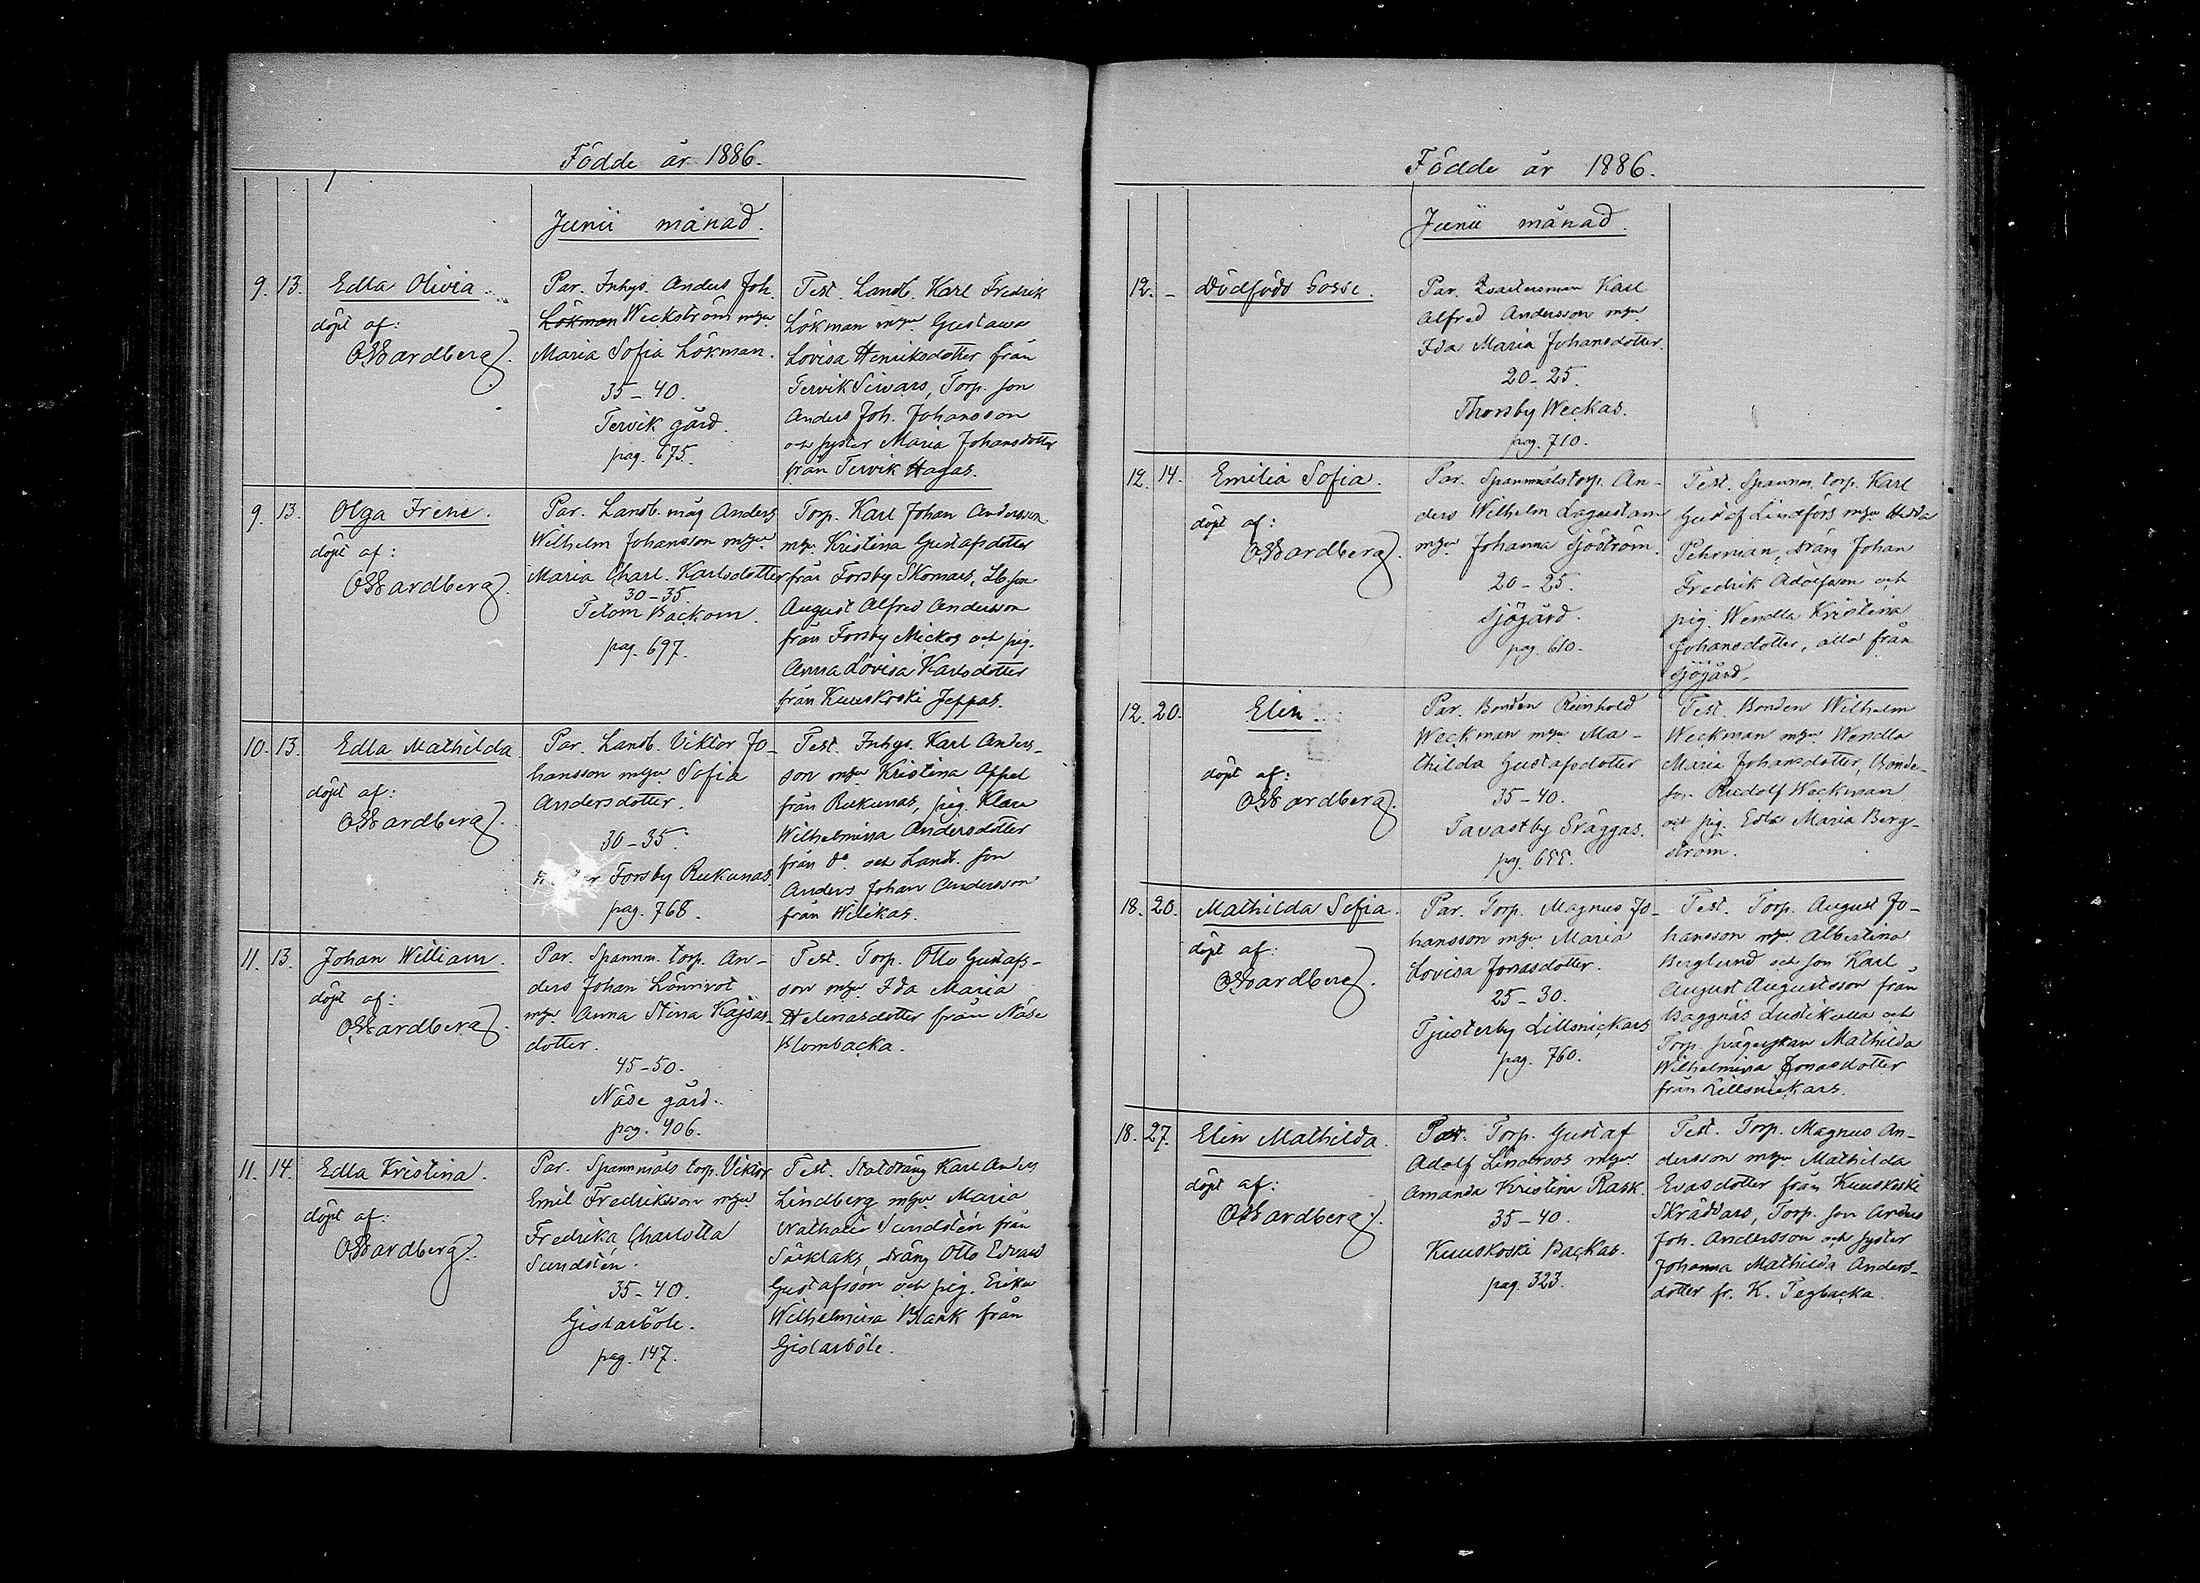 Födde år 1886.
Junii månad.
9. 13. Edla Olivia.
döpt af:
OWardberg.
Par. Inhys. Anders Joh.
Lökman Weckström m hu
Maria Sofia Lökman.
35-40.
Tervik gård.
pag. 675.
Test. Landb. Karl Fredrik
Lökman m hu Gustava
Lovisa Henriksdotter från
Tervik Sivars, Torp. son
Anders Joh. Johansson
o syster Maria Johansdotter
från Tervik Hagas.
9. 13. Olga Irene.
döpt af:
OWardberg.
Par. Landb. måg Anders
Wilhelm Johansson m hu
Maria Charl. Karlsdotter
30-35.
Tetom Backom.
pag. 697.
Torp. Karl Johan Andersson
m hu Kristina Gustafsdotter
från Forsby Skomars, Lb son
August Alfred Andersson
från Forsby Mickos och pig.
Anna Lovisa Karlsdotter
från Kuuskoski Jeppas.
10. 13. Edla Mathilda
döpt af:
OWardberg.
Par. Landb. Viktor Jo-
hansson m hu Sofia
Andersdotter.
30-35.
Forsby Rukunas.
pag. 768.
Test. Inhys. Karl Anders-
son m hu Kristina Appel
från Rukunas, pig. Klara
Wilhelmina Andersdotter
från do och Landb. son
Anders Johan Andersson
från Wilikas.
11. 13. Johan William.
döpt af:
OWardberg.
Par. Spannm. torp. An-
ders Johan Lönnrot
m hu Anna Stina Kajsas-
dotter.
45-50.
Näse gård.
pag. 406.
Test. Torp. Otto Gustafs-
son m hu Ida Maria
Helenasdotter från Näse
Blombacka.
11. 14. Edla Kristina.
döpt af:
OWardberg.
Par. Spannmåls torp. Viktor
Emil Fredriksson m hu
Fredrika Charlotta
Sundstén.
35-40.
Gislarböle.
pag. 147.
Test. Staldräng Karl Anders
Lindberg m hu Maria
Nathalia Sundstén från
Särklaks, dräng Otto Edvard
Gustafsson och pig. Erika
Wilhelmina Blank från
Gislarböle.
Födde år 1886.
Junii månad.
12. - Dödfödd Gosse.
Par. Qvartersman Karl
Alfred Andersson m hu
Ida Maria Johansdotter.
20-25.
Thorsby Weckas.
pag. 710.
12. 14. Emilia Sofia.
döpt af:
OWardberg.
Par. Spannmålstorp. An-
ders Wilhelm Lagerstam
m hu Johanna Sjöström.
20-25.
Sjögård.
pag. 610.
Test. Spannm. torp. Karl
Gustaf Lindfors m hu Hedda
Pehrman, dräng Johan
Fredrik Adolfsson och
pig. Wendla Kristina
Johansdotter, alla från
Sjögård.
12. 20. Elin.
döpt af:
OWardberg.
Par. Bonden Reinhold
Weckman m hu Ma-
thilda Gustafsdotter
35-40.
Tavastby Präggas.
pag. 655.
Test. Bonden Wilhelm
Weckman m hu Wendla
Maria Johansdotter, Bonde-
son Rudolf Weckman
och pig. Edla Maria Berg-
ström.
18. 20. Mathilda Sofia.
döpt af:
OWardberg.
Par. Torp. Magnus Jo-
hansson m hu Maria
Lovisa Jonasdotter.
25-30.
Tjusterby Lillsnickars
pag. 760.
Test. Torp. August Jo-
hansson m hu Albertina
Berglund och son Karl
August Augustsson från
Baggnäs Lustikulla och
Torp. svägerskan Mathilda
Wilhelmina Jonasdotter
från Lillsnickars.
18. 27. Elin Mathilda.
döpt af:
OWardberg.
Par. Torp. Gustaf
Adolf Lindroos m hu
Amanda Kristina Rask.
35-40.
Kuuskoski Backas.
pag. 323.
Test. Torp. Magnus An-
dersson m hu Mathilda
Evasdotter från Kuuskoski
Skräddars, Torp. son Anders
Joh. Andersson och syster
Johanna Mathilda Anders-
dotter fr. K. Tegbacka.